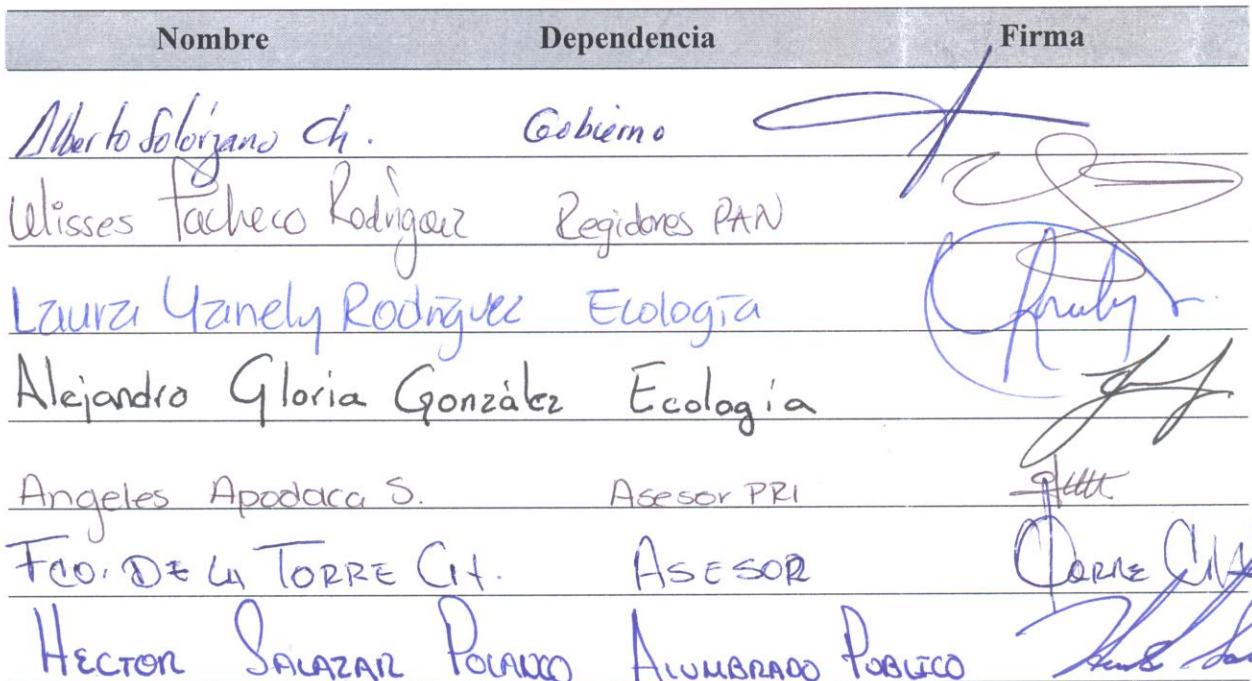 Nombre Dependencia Firma
Alberto Solórzano Ch. Gobierno
Ulisses Pacheco Rodríguez Regidores PAN
Laura Yanely Rodríguez Ecología
Alejandro Gloria González Ecología
Angeles Apodaca S. Asesor PRI
Fco. DE LA TORRE CH. ASESOR TORRE
HECTOR SALAZAR POLANCO ALUMBRADO PUBLICO